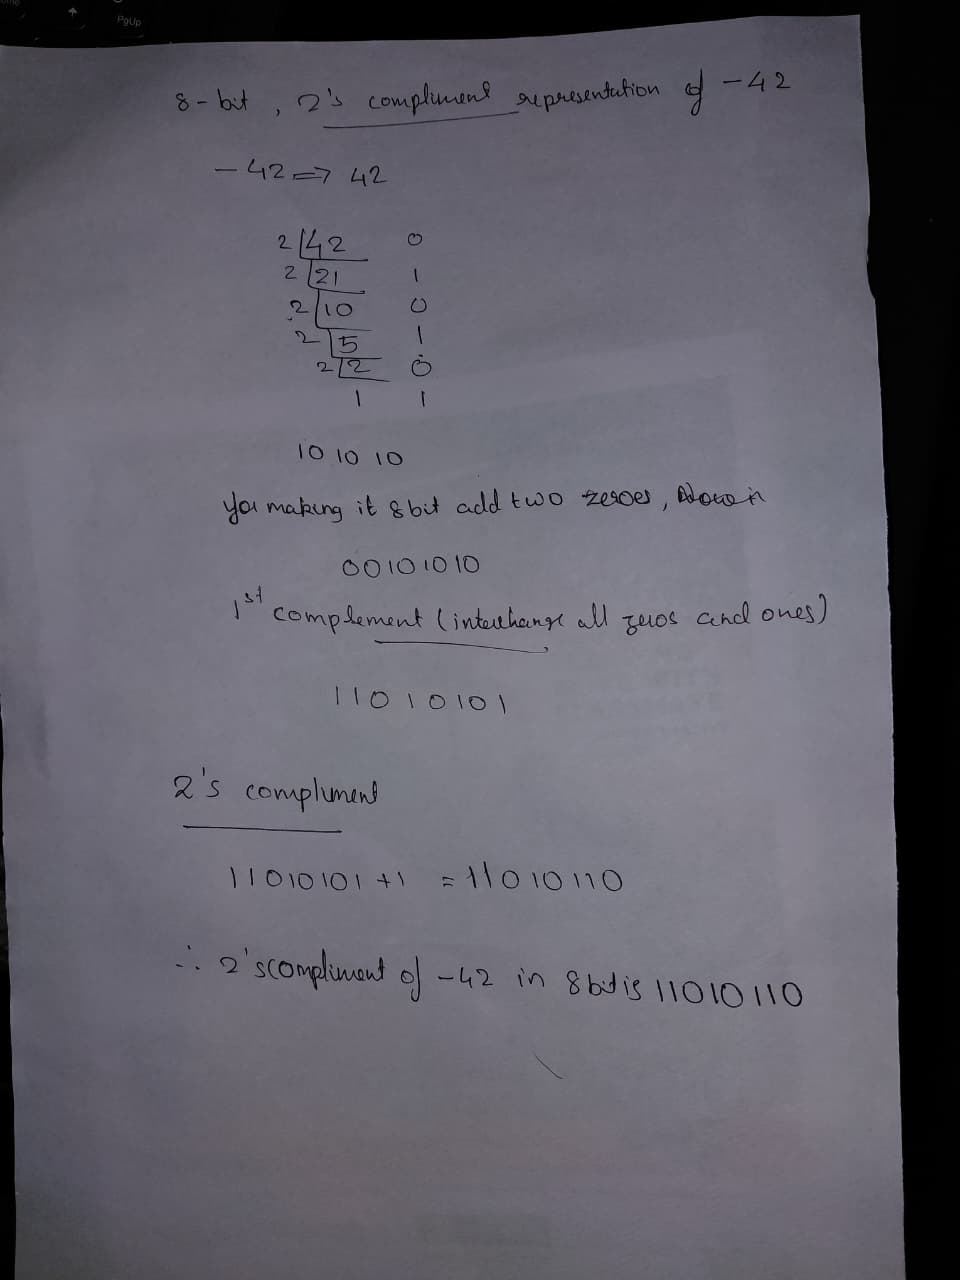 PgUp
8-bit, 2's compliment representation of -42
-42 => 42
2 42 0
2 21 1
2 10 0
2 5 1
2 2 0
1 1
10 10 10
making it 8bit add two zeroes,
00101010
1st complement (interchange all zeros and ones)
11010101
2's compliment
11010101+1 = 11010110
∴ 2's compliment of -42 in 8bit is 11010110